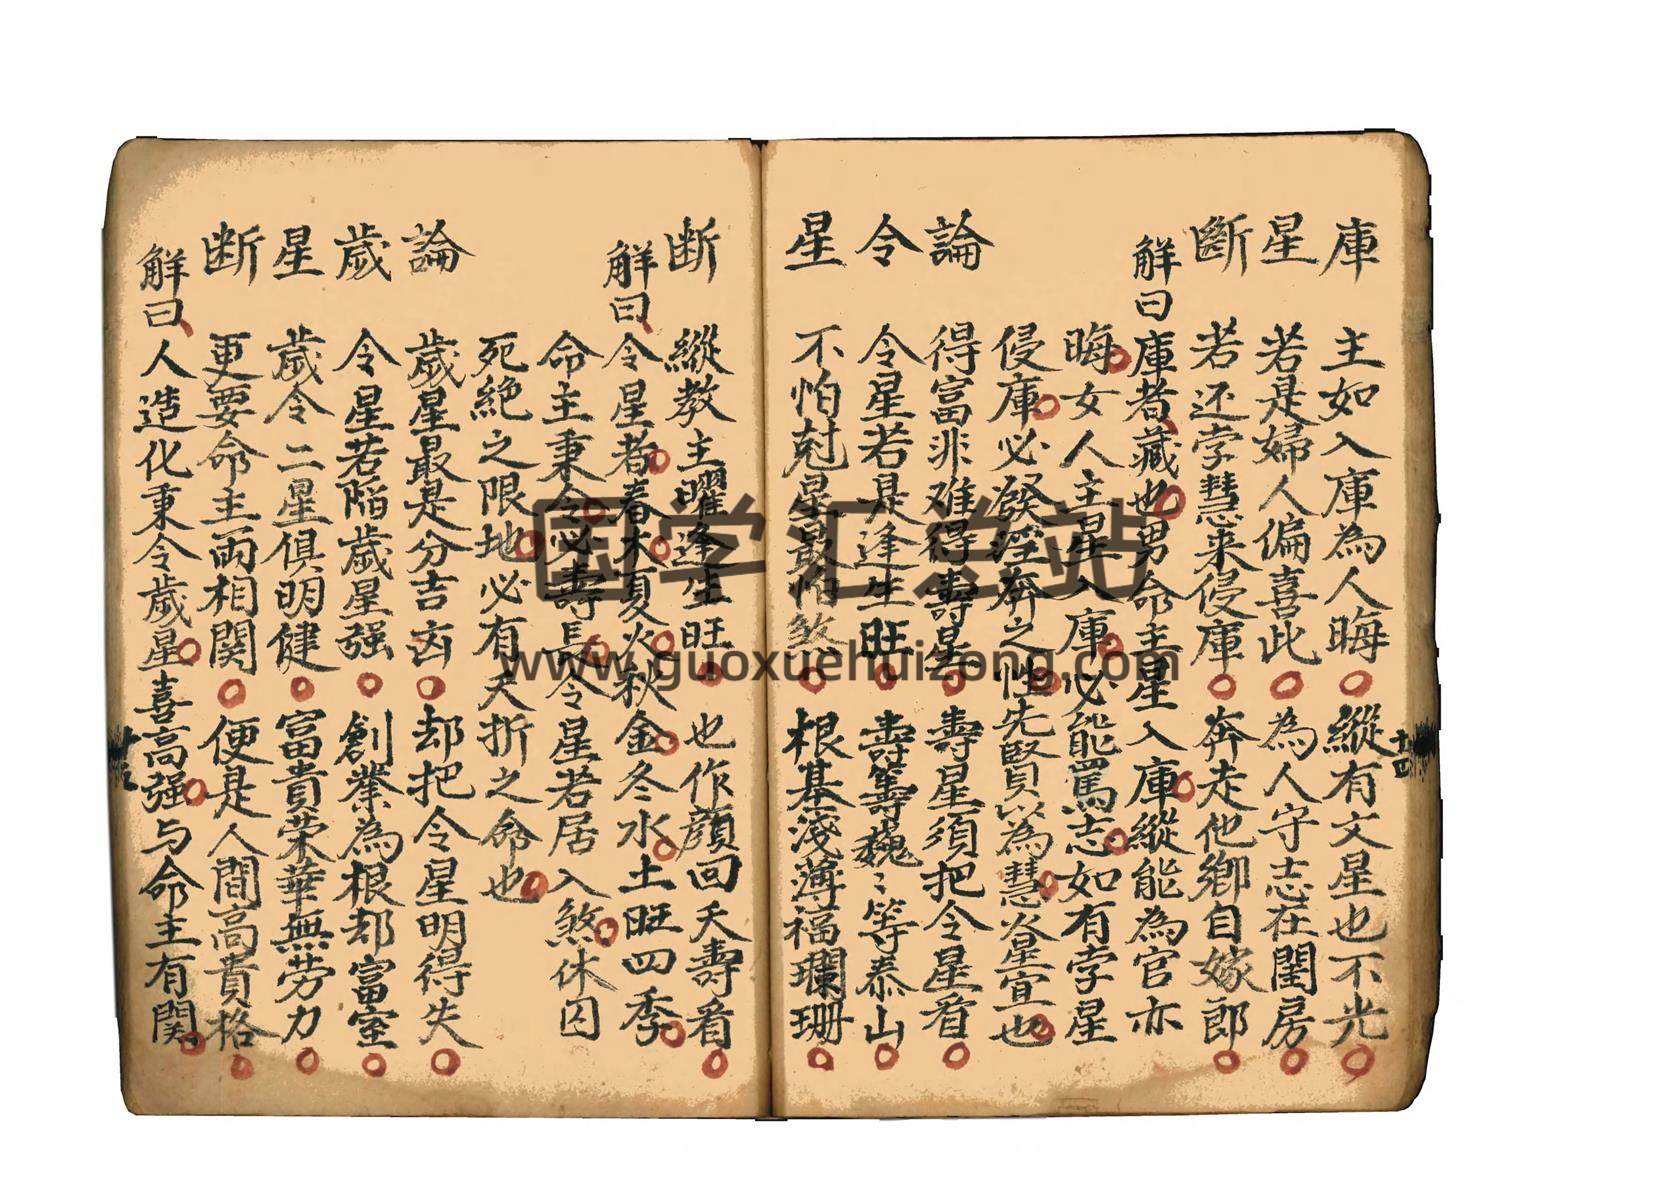 庫 主如入庫為人晦 縱有文星也不光
星 若是婦人偏喜此 為人守志在閨房
斷 若还孛慧来侵庫 奔走他鄉自嫁郎
解曰庫者藏也男命主星入庫縱能為官亦
晦女人主星入庫必能篤志如有孛星
侵庫必發淫奔之性先賢以為慧炎星宜也
論 得富非难得壽星 壽星須把令星看
令 令星若是逢生旺 壽籌巍〻等泰山
星 不怕尅星最怕煞 根基淺薄福瓓珊
断 縱教主曜逢生旺 也作顏回夭壽看
解曰令星者春木夏火秋金冬水土旺四季
命主秉令必壽長令星若居入煞休囚
死絶之限地必有夭折之命也
論 歲星最是分吉凶 却把令星明得失
歲 令星若陷歲星强 創業為根却富室
星 歲令二星俱明健 富貴荣華無劳力
断 更要命主両相関 便是人間高貴格
解曰人造化秉令歲星喜高强与命主有関
十四
国学汇总站
www.guoxuehuizong.com